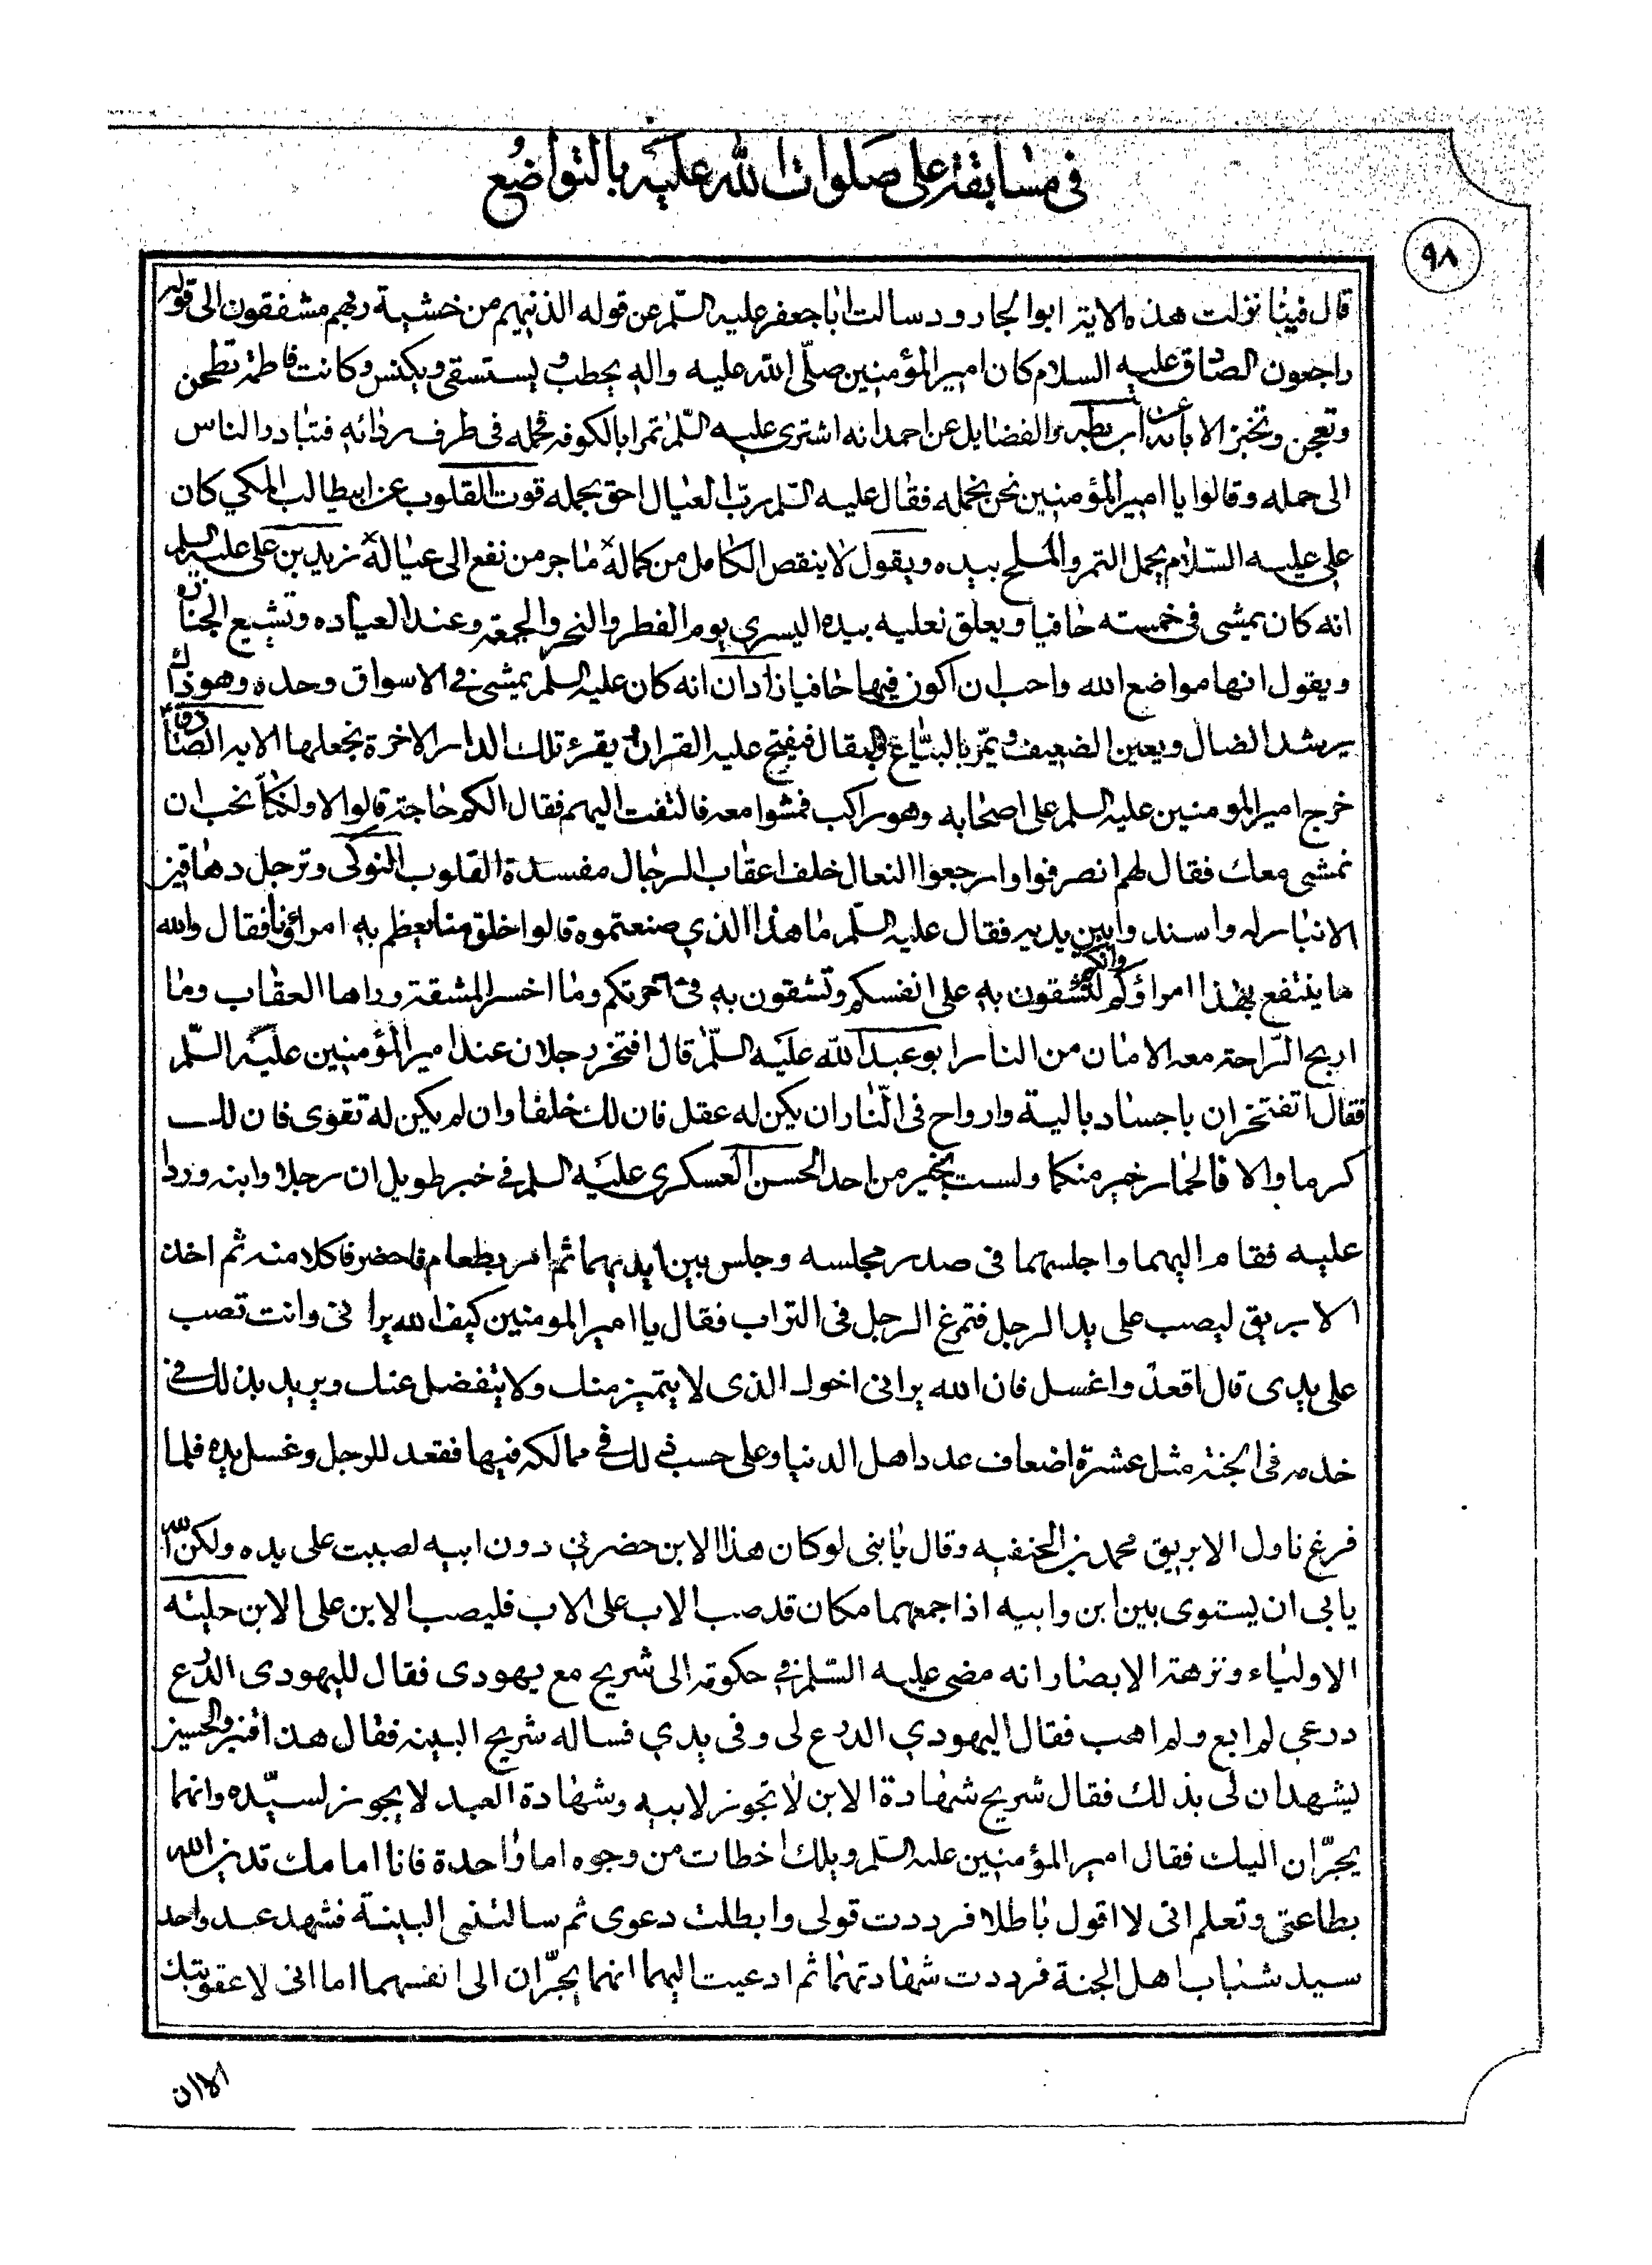 في مسابقة على صلوات الله عليه بالتواضع
٩٨
قال فينا نزلت هذه الاية ابو الجارود سالت ابا جعفر عليه السلم عن قوله الذينهم من خشية ربهم مشفقون الى قوله
راجعون الصادق عليه السلام كان امير المؤمنين صلى الله عليه واله يحطب و يستسقى ويكنس وكانت فاطمة تطحن
وتعجن وتخبز الابانة عن ابن بطه والفضايل عن احمد انه اشترى عليه السلم تمرا بالكوفه فحمله في طرف ردائه فتبادر الناس
الى حمله وقالوا يا امير المؤمنين نحن نحمله فقال عليه السلم رب العيال احق بحمله قوت القلوب عن ابيطالب المكي كان
على عليه السلام يحمل التمر والملح بيده ويقول لا ينقص الكامل من كماله ما جر من نفع الى عياله زيد بن على عليه السلم
انه كان يمشى في خمسته حافيا ويعلق نعليه بيده اليسرى يوم الفطر والنحر والجمعة وعند العياده وتشييع الجنازه
ويقول انها مواضع الله واحب ان اكون فيها حافيا زاذان انه كان عليه السلم يمشى في الاسواق وحده وهو ذاك
يرشد الضال ويعين الضعيف ويمر بالبياع والبقال فيفتح عليه القران و يقرئ تلك الدار الاخرة نجعلها الايه الصادق
خرج امير المومنين عليه السلم على اصحابه وهو راكب فمشوا معه فالتفت اليهم فقال الكم حاجة قالوا لا ولكنا نحب ان
نمشى معك فقال لهم انصرفوا وارجعوا النعال خلف اعقاب الرجال مفسدة القلوب النوكى وترجل دهاقين
الانبار له واسندوا بين يديه فقال عليه السلم ما هذا الذي صنعتموه قالوا خلق منا نعظم به امراؤنا فقال والله
ما ينتفع بهذا امراؤكم وانكم لتشقون به على انفسكم وتشقون به في اخرتكم وما اخسر المشقة وراها العقاب وما
اربح الراحة معه الامان من النار ابو عبد الله عليه السلم قال افتخر رجلان عند امير المؤمنين عليه السلم
فقال اتفتخران باجساد بالية وارواح في النار ان يكن له عقل فان لك خلفا وان لم يكن له تقوى فان لك
كرما والا فالحمار خير منكما ولست بخير من احد الحسن العسكرى عليه السلم في خبر طويل ان رجلا وابنه وردا
عليه فقام اليهما واجلسهما في صدر مجلسه وجلس بين ايديهما ثم امر بطعام فاحضر فاكلا منه ثم اخذ
الابريق ليصب على يد الرجل فتمرغ الرجل في التراب فقال يا امير المومنين كيف الله يرانى وانت تصب
على يدى قال اقعد واغسل فان الله يرانى اخوك الذى لا يتميز منك ولا يتفضل عنك ويريد بذلك في
خدمه في الجنة مثل عشرة اضعاف عدد اهل الدنيا وعلى حسب ذلك في ممالكه فيها فقعد للرجل وغسل يده فلما
فرغ ناول الابريق محمد بن الحنفيه وقال يا بنى لو كان هذا الابن حضرني دون ابيه لصببت على يده ولكن الله
يابى ان يستوى بين ابن وابيه اذا جمعهما مكان قد صب الاب على الاب فليصب الابن على الابن حلية
الاولياء ونزهة الابصار انه مضى عليه السلم في حكومة الى شريح مع يهودى فقال لليهودى الدرع
درعي لم ابع ولم اهب فقال اليهودي الدرع لى وفى يدي فساله شريح البينه فقال هذا قنبر والحسين
يشهدان لى بذلك فقال شريح شهادة الابن لا تجوز لابيه وشهادة العبد لا يجوز لسيده وانهما
يجران اليك فقال امير المؤمنين عليه السلم ويلك اخطات من وجوه اما واحدة فانا امامك تدين الله
بطاعتى وتعلم انى لا اقول باطلا فرددت قولى وابطلت دعوى ثم سالتنى البينة فشهد عبد واحد
سيد شباب اهل الجنة فرددت شهادتهما ثم ادعيت اليهما انهما يجران الى انفسهما اما انى لا عقوبتك
الا ان